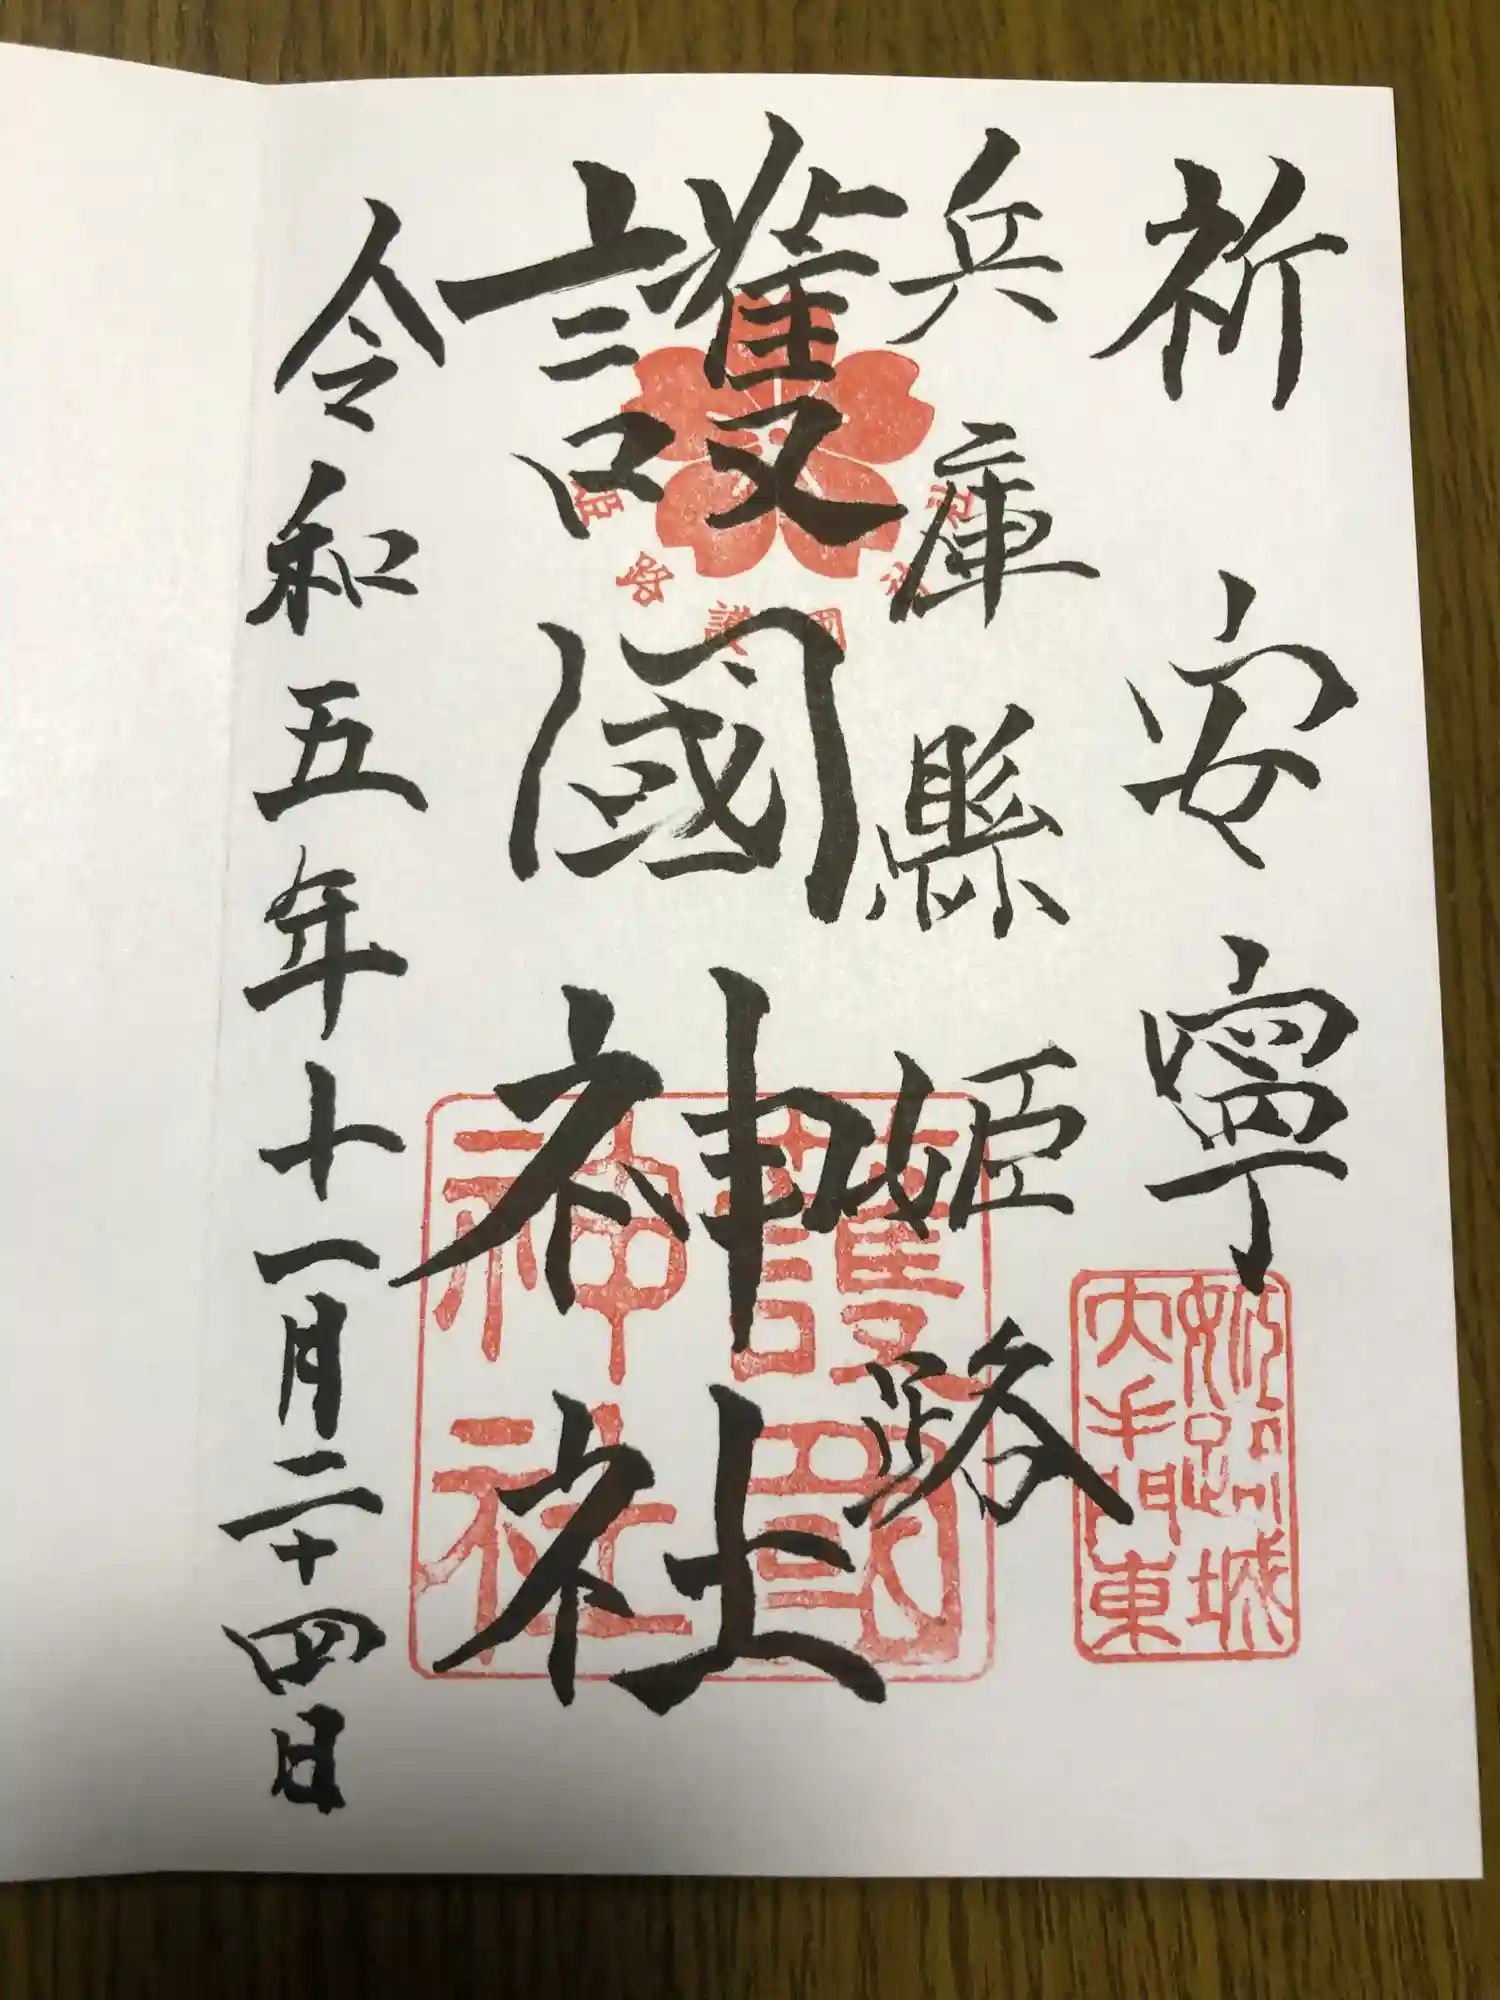 祈安寧
兵庫縣姫路
護國神社
令和五年十一月二十四日
姫路護國神社
護國神社
姫路城
大手門東